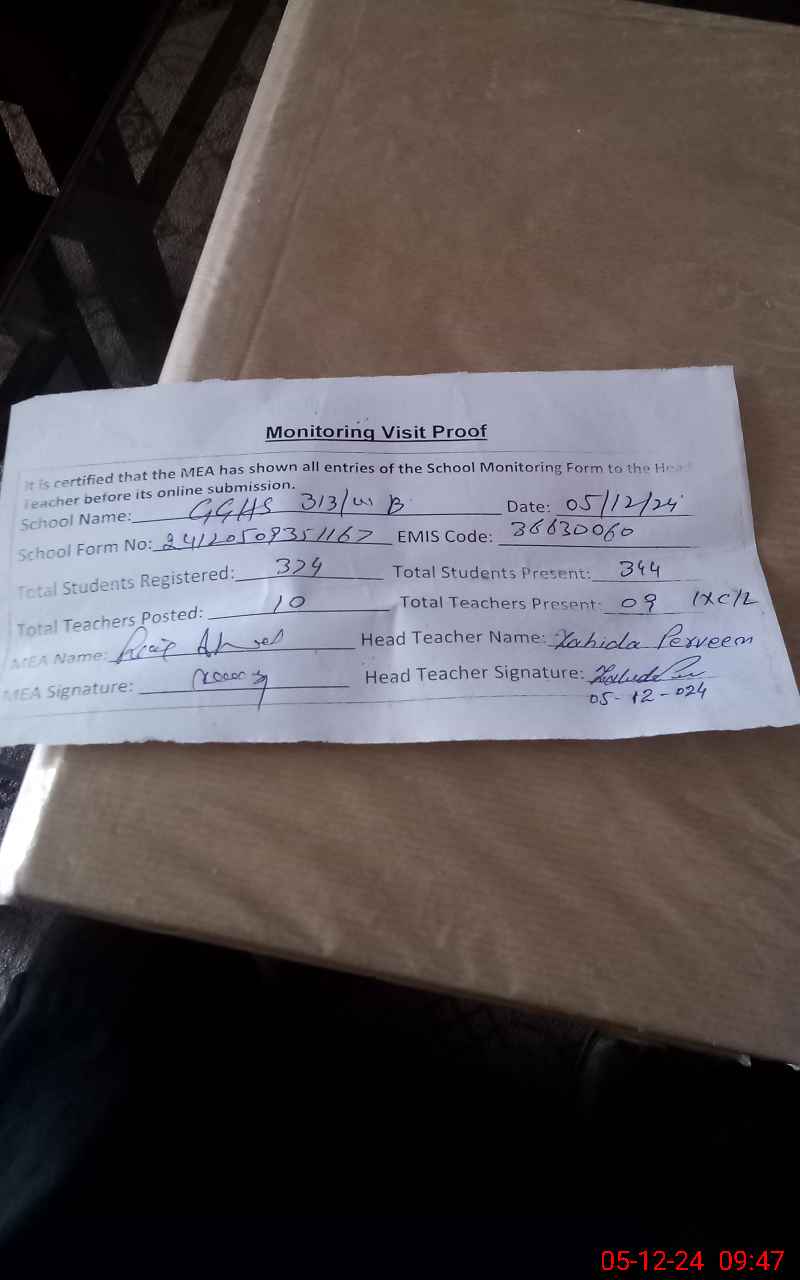 Monitoring Visit Proof
It is certified that the MEA has shown all entries of the School Monitoring Form to the Head
Teacher before its online submission.
School Name: GGHS 313/W B Date: 05/12/24
School Form No: 24120509351167 EMIS Code: 36630060
Total Students Registered: 374 Total Students Present: 344
Total Teachers Posted: 10 Total Teachers Present: 09 1xC/L
MEA Name: Head Teacher Name: Zahida Perveen
MEA Signature: Head Teacher Signature:
05-12-024
05-12-24 09:47